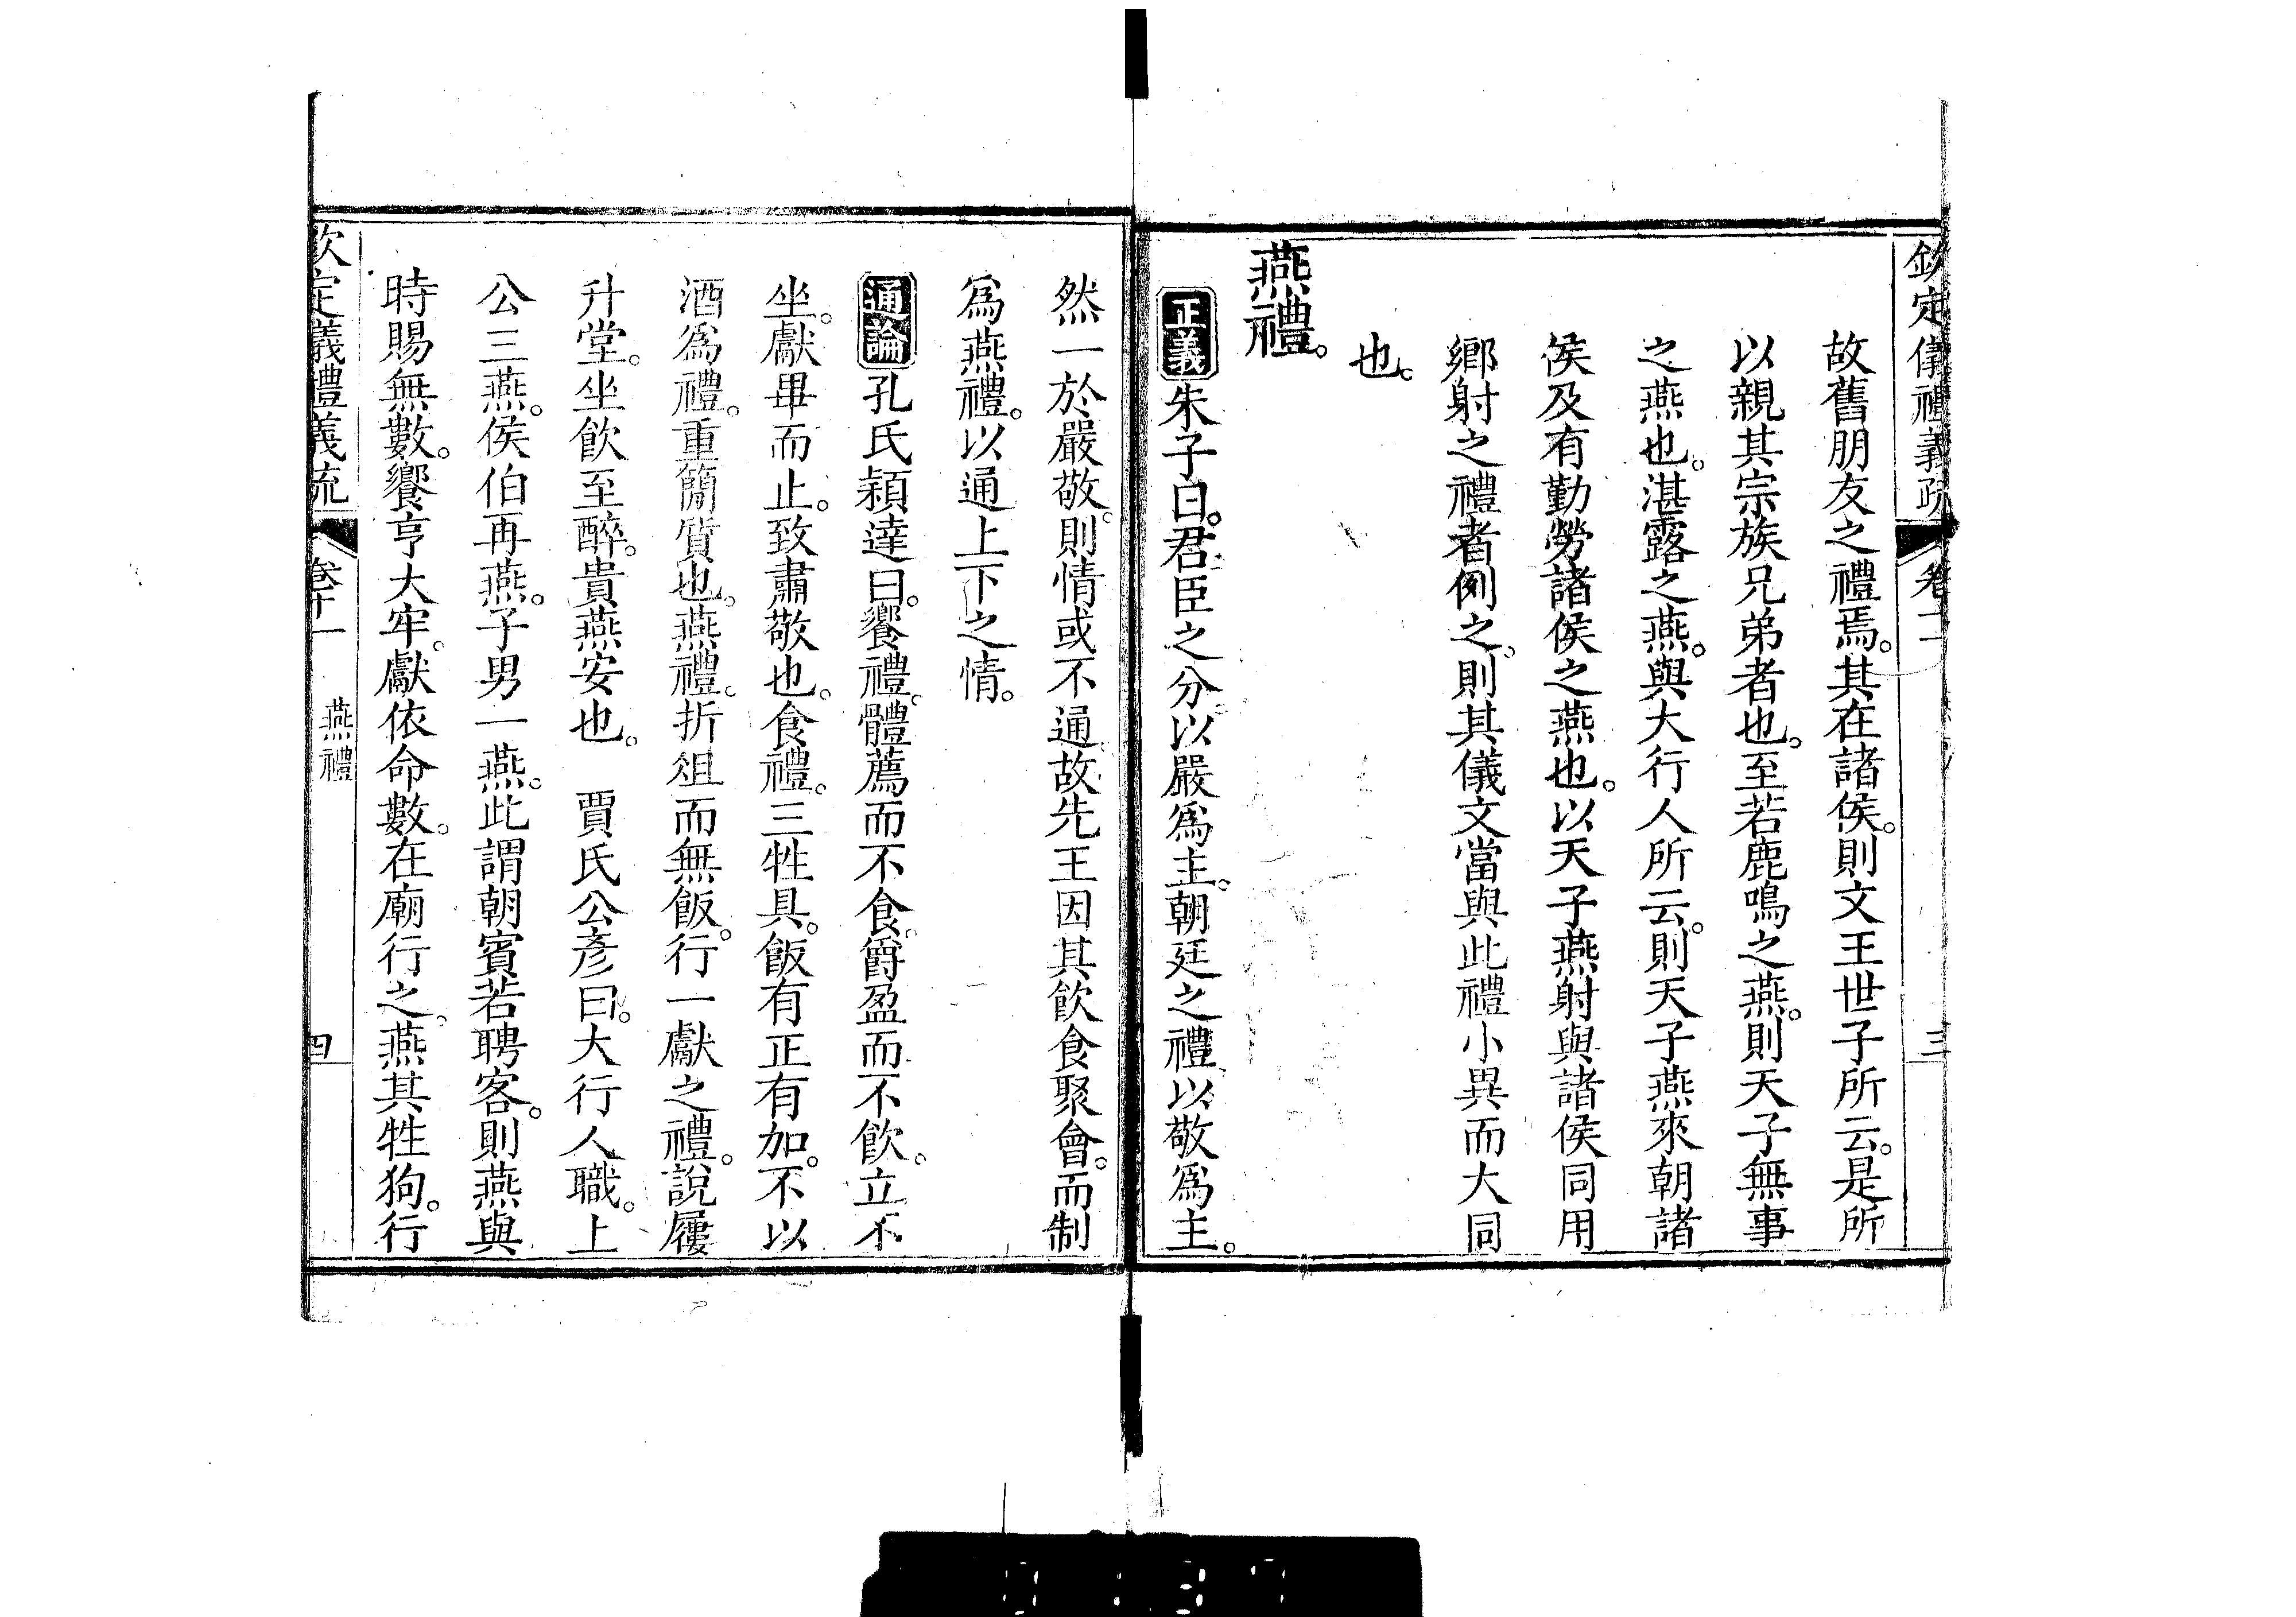 欽定儀禮義疏 卷十一 三
故舊朋友之禮焉。其在諸侯。則文王世子所云。是所
以親其宗族兄弟者也。至若鹿鳴之燕。則天子無事
之燕也。湛露之燕。與大行人所云。則天子燕來朝諸
侯及有勤勞諸侯之燕也。以天子燕射與諸侯同用
鄉射之禮者例之。則其儀文當與此禮小異而大同
也。
燕禮。
正義朱子曰。君臣之分。以嚴爲主。朝廷之禮。以敬爲主。
然一於嚴敬。則情或不通。故先王因其飲食聚會。而制
爲燕禮。以通上下之情。
通論孔氏穎達曰。饗禮。體薦而不食。爵盈而不飲。立不
坐。獻畢而止。致肅敬也。食禮。三牲具。飯有正有加。不以
酒爲禮。重簡質也。燕禮。折俎而無飯。行一獻之禮。說屨
升堂。坐飲至醉。貴燕安也。 賈氏公彥曰。大行人職。上
公三燕。侯伯再燕。子男一燕。此謂朝賓若聘客。則燕與
時賜無數。饗亨大牢。獻依命數。在廟行之。燕其牲狗。行
欽定儀禮義疏 卷十一 燕禮 四